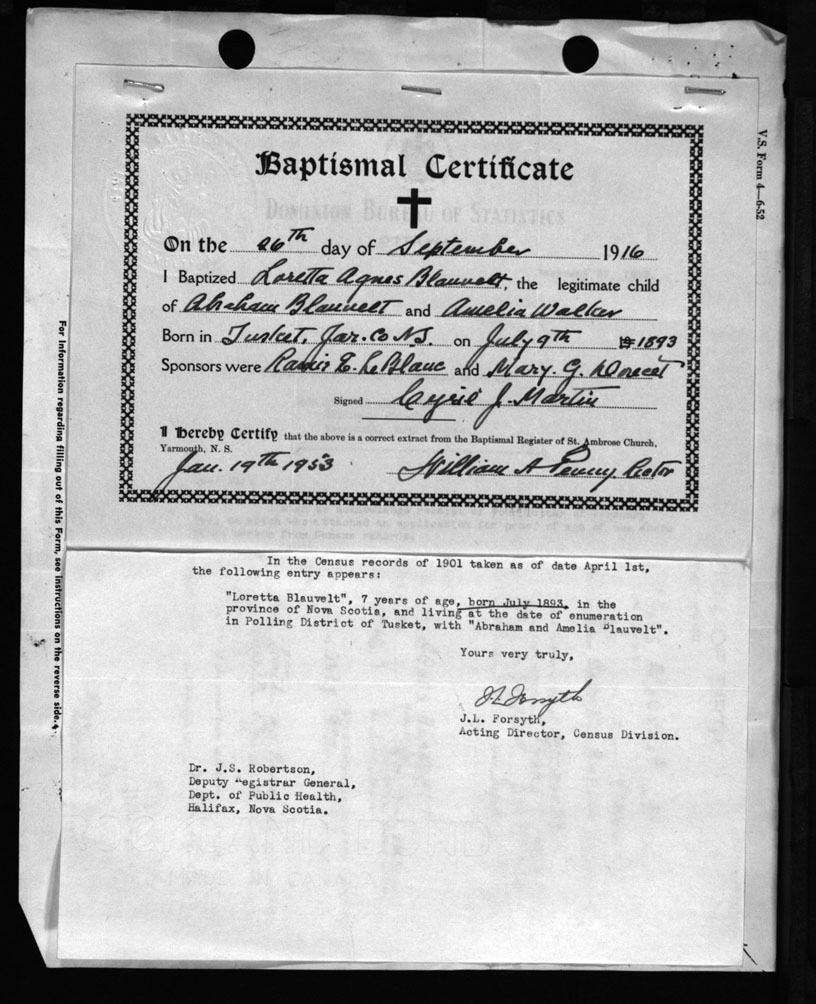 Baptismal Certificate
DOMINION BUREAU OF STATISTICS
On the 26th day of September 1916
I Baptized Loretta Agnes Blauvelt, the legitimate child
of Abraham Blauvelt and Amelia Walker
Born in Tusket, Yar. Co N.S. on July 9th 1893
Sponsors were E. LeBlanc and Mary. G. Doucet
Signed Cyrie J. Martin
I Hereby Certify that the above is a correct extract from the Baptismal Register of St. Ambrose Church,
Yarmouth, N. S.
Jan. 19th 1953 William A Penny Rector
In the Census records of 1901 taken as of date April 1st,
the following entry appears:
"Loretta Blauvelt", 7 years of age, born July 1893, in the
province of Nova Scotia, and living at the date of enumeration
in Polling District of Tusket, with "Abraham and Amelia Blauvelt".
Yours very truly,
J L Forsyth
J.L. Forsyth,
Acting Director, Census Division.
Dr. J.S. Robertson,
Deputy Registrar General,
Dept. of Public Health,
Halifax, Nova Scotia.
V.S. Form 4—6-52
For information regarding filling out of this Form, see instructions on the reverse side.